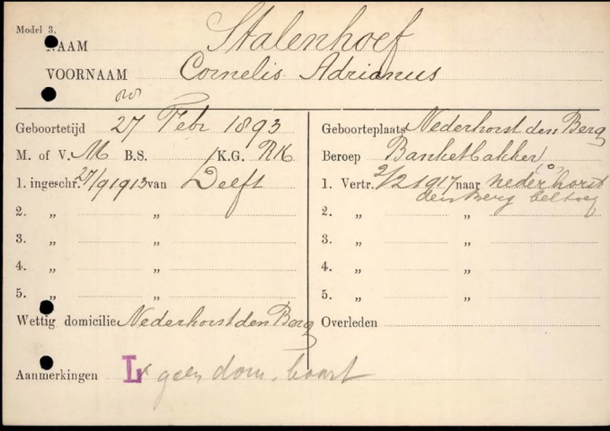 Model 3.
NAAM Stalenhoef
VOORNAAM Cornelis Adrianus
Geboortetijd 27 Febr 1893
M. of V. M B.S. /K.G. RK
1. ingeschr. 27/9 1913 van Delft
2. „ „
3. „ „
4. „ „
5. „ „
Wettig domicilie Nederhorst den Berg
Geboorteplaats Nederhorst den Berg
Beroep Banketbakker
1. Vertr. 2/2 1917 naar nederhorst
den Berg
2. „ „
3. „ „
4. „ „
5. „ „
Overleden
Aanmerkingen L geen dom. kaart